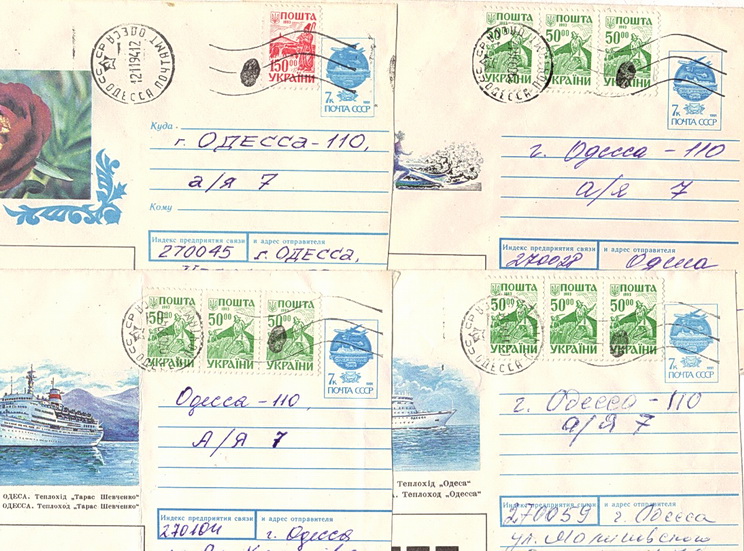 СССР ОДЕССА ПОЧТАМТ
12 11 94 12
ПОШТА
150 00
УКРАЇНИ
7к
ПОЧТА СССР
Куда
г. ОДЕССА-110,
а/я 7
Кому
Индекс предприятия связи и адрес отправителя
270045 г. ОДЕССА,
ПОШТА ПОШТА ПОШТА
50 00 50 00 50 00
УКРАЇНИ УКРАЇНИ УКРАЇНИ
7к
ПОЧТА СССР
г. Одесса - 110
а/я 7
Индекс предприятия связи и адрес отправителя
Одесса
ОДЕСА. Теплохід „Тарас Шевченко"
ОДЕССА. Теплоход „Тарас Шевченко"
ПОШТА ПОШТА ПОШТА
50 00 50 00 50 00
УКРАЇНИ УКРАЇНИ УКРАЇНИ
7к
ПОЧТА СССР
Одесса - 110,
А/Я 7
Индекс предприятия связи и адрес отправителя
270104 г. Одесса
Теплохід „Одеса"
А. Теплоход „Одесса"
ПОШТА ПОШТА ПОШТА
50 00 50 00 50 00
УКРАЇНИ УКРАЇНИ УКРАЇНИ
7к
ПОЧТА СССР
г. Одесса - 110
а/я 7
Индекс предприятия связи и адрес отправителя
270059 г. Одесса
ул.